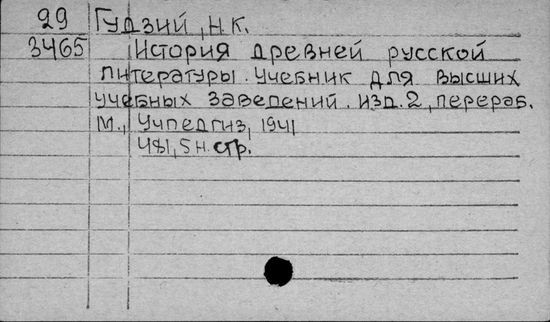 29 Гудзий, Н.К.
3465 История древней русской
литературы. Учебник для высших
учебных заведений. Изд.2, перераб.
М., Учпедгиз, 1941
481, 5 н. стр.